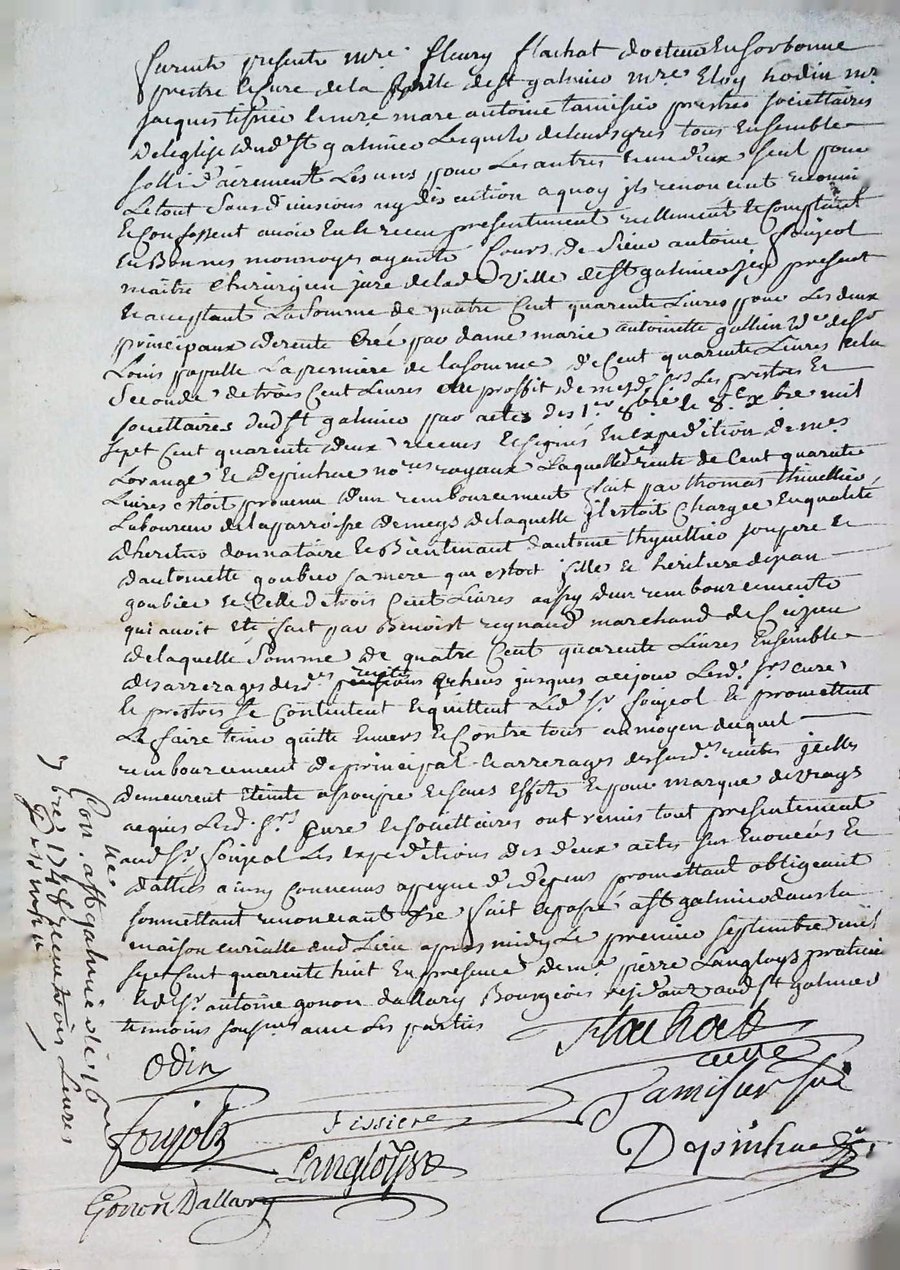 furent presents mre fleury flachat docteur En sorbonne
prestre Et cure de la ville de st galmier mre Eloy hodin mre
jacques tissier Et mre marc antoine tamisier prestres societtaires
de leglise dud st galmier Lesquels de leurs gres tous Ensemble
sollidairement Les uns pour Les autres Et un deux seul pour
Le tout sans divisions ny discution a quoy ils renoncent
Et Confessent avoir Eu Et receu presentement reellement Et Comptant
En Bonnes monnoyes ayants Cours de sieur antoine foujol
maitre chirurgien juré de lad Ville de st galmier jcy present
Et acceptant La somme de quatre Cent quarente Livres pour Les deux
principaux de rente créé par dame marie antoinette gallien de sr
Louis papulle La premiere de la somme de Cent quarente Livres Et la
seconde de trois Cent Livres au proffit de mesd srs Les prestres Et
societtaires dud st galmier par actes des 1er 8bre Et 8e xbre mil
sept Cent quarente deux receues Et signés En expedition de mes
Lorange Et depinhac nores royaux Laquelle rente de Cent quarente
Livres estoit provenu d'un remboursement fait par thomas thuellier
Laboureur de la parroisse de meys de laquelle jl estoit Chargee En qualité
dheritier donnataire Et Bientenant dantoine thyuellier son pere Et
dantoinette goubier sa mere qui estoit fille Et heritiere de jean
goubier Et Celle de trois Cent Livres aussy d'un remboursement
qui avoit Eté fait par Benoist reynaud marchand de Cuzieu
de laquelle somme de quatre Cent quarente Livres Ensemble
des arrerages desd rentes Echeus jusques a ce jour Lesd srs cure
Et prestres se Contentent Et quittent Led sr foujol Et promettent
Le faire tenir quitte Envers Et Contre tous au moyen duquel
remboursement de principal Et arrerages desd rentes jcelles
demeurent Eteinte assoupie Et sans Effets Et pour marque de vrays
acquis Lesd srs Cure Et societtaires ont remis tout presentement
aud sr foujol Les expeditions des deux actes sus Enoncées Et
dattés ainsy Convenus a peyne d'depens promettant obligeant
soumettant renonceant fait Et passé a st galmier dans la
maison curialle dud Lieu apres midy Le premier septembre mil
sept Cent quarente huit En presence de me pierre Langloys praticien
Et sr antoine gonon dallary Bourgeois residant aud st galmier
temoins sousnes avec Les parties
Flachat
cure
Odin
Tamisier
foujols
Tissiere
Langloys
Depinhac
Gonon Dallary
Con. a st galmier le 16
7bre 1748 receu trois Livres
Depinhac